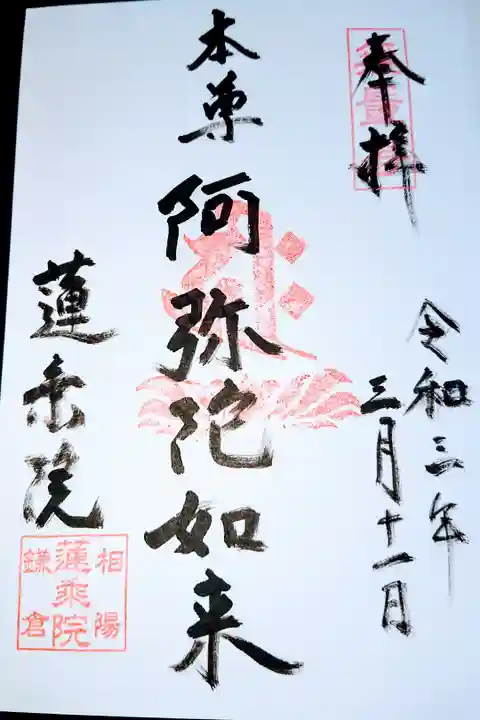 奉拝
無量寿
令和三年
三月十一日
本尊 阿弥陀如来
蓮乗院
相陽
蓮乗院
鎌倉